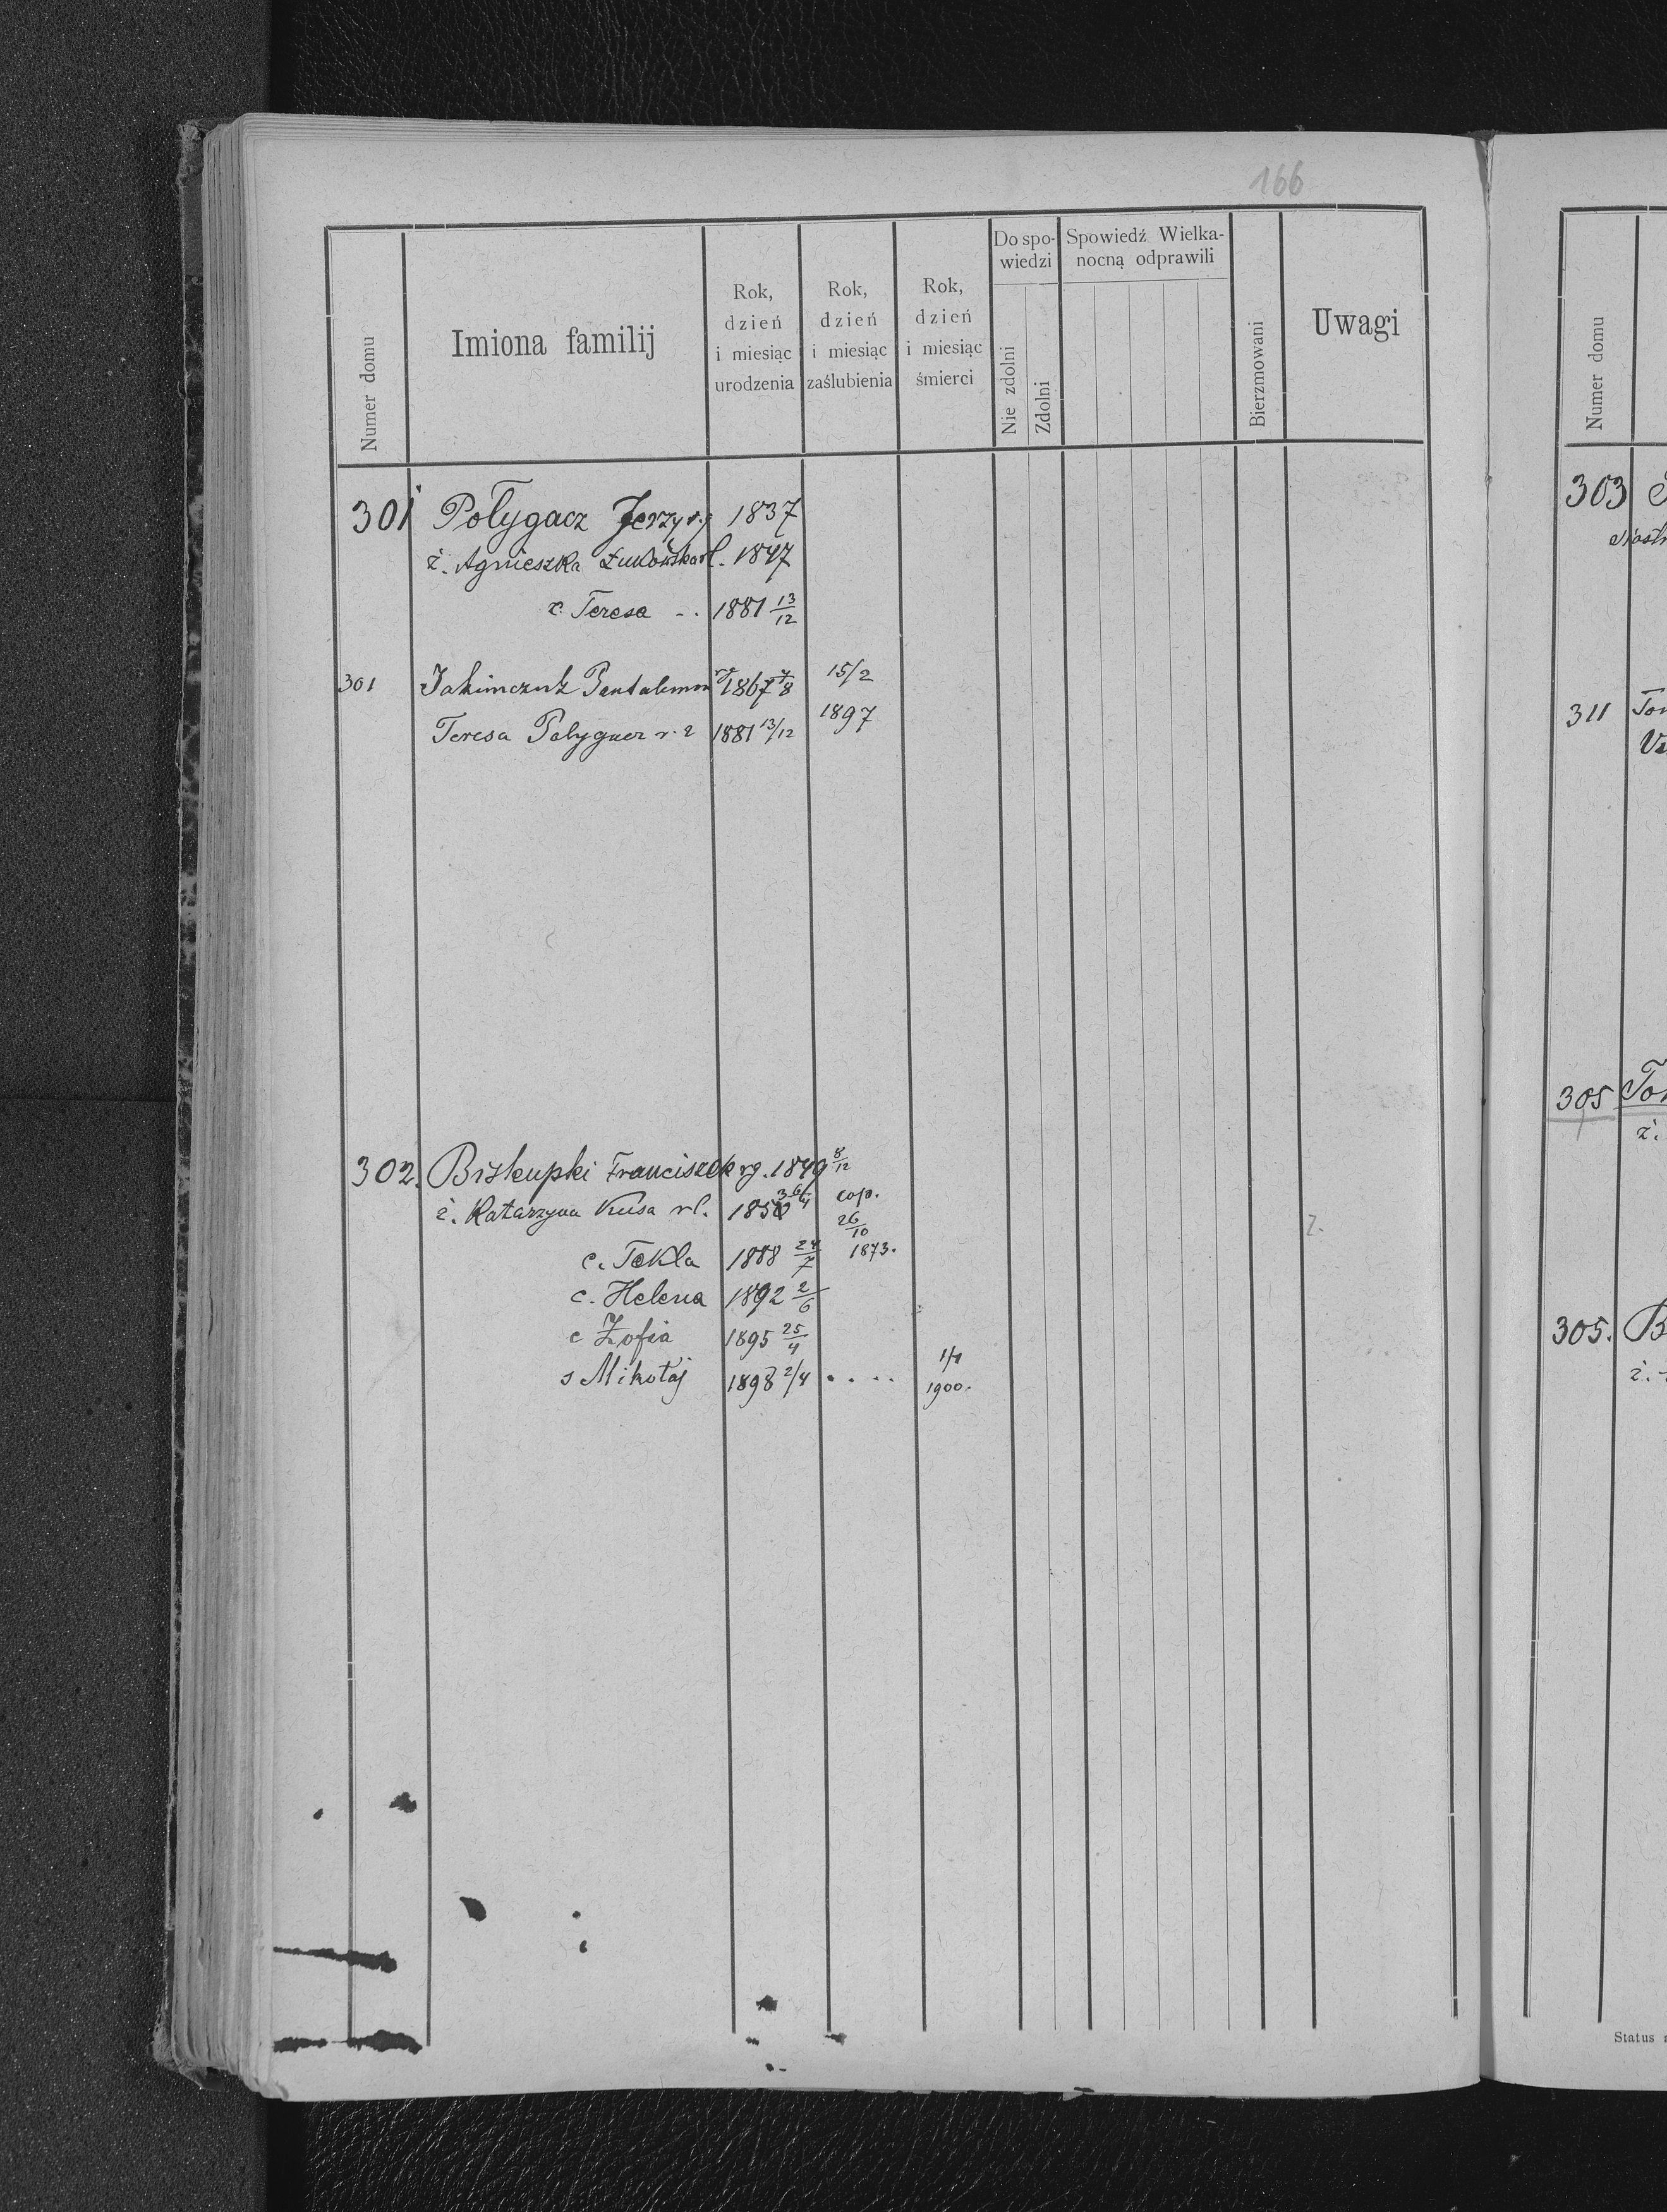 166
Numer domu
Imiona familij
Rok,
dzień
i miesiąc
urodzenia
Rok,
dzień
i miesiąc
zaślubienia
Rok,
dzień
i miesiąc
śmierci
Do spo-
wiedzi
Nie zdolni
Zdolni
Spowiedź Wielka-
nocną odprawili
Bierzmowani
Uwagi
301 Połygacz Jerzy r.g 1837
ż. Agnieszka 1847
c. Teresa 1881 13/12
301 Jakimczuk Pantalemon 1867 7/8 15/2
Teresa Połygacz 1881 13/12 1897
302. Biskupski Franciszek rg. 1849 8/12
ż. Katarzyna Kusa rl. 1853 6/4 cop.
26/10
c. Tekla 1888 24/7 1873.
c. Helena 1892 2/6
c Zofia 1895 25/4
s Mikołaj 1898 2/4 . . . . 1/1
1900.
Numer domu
303
311
305
ż.
305. B
ż.
Status